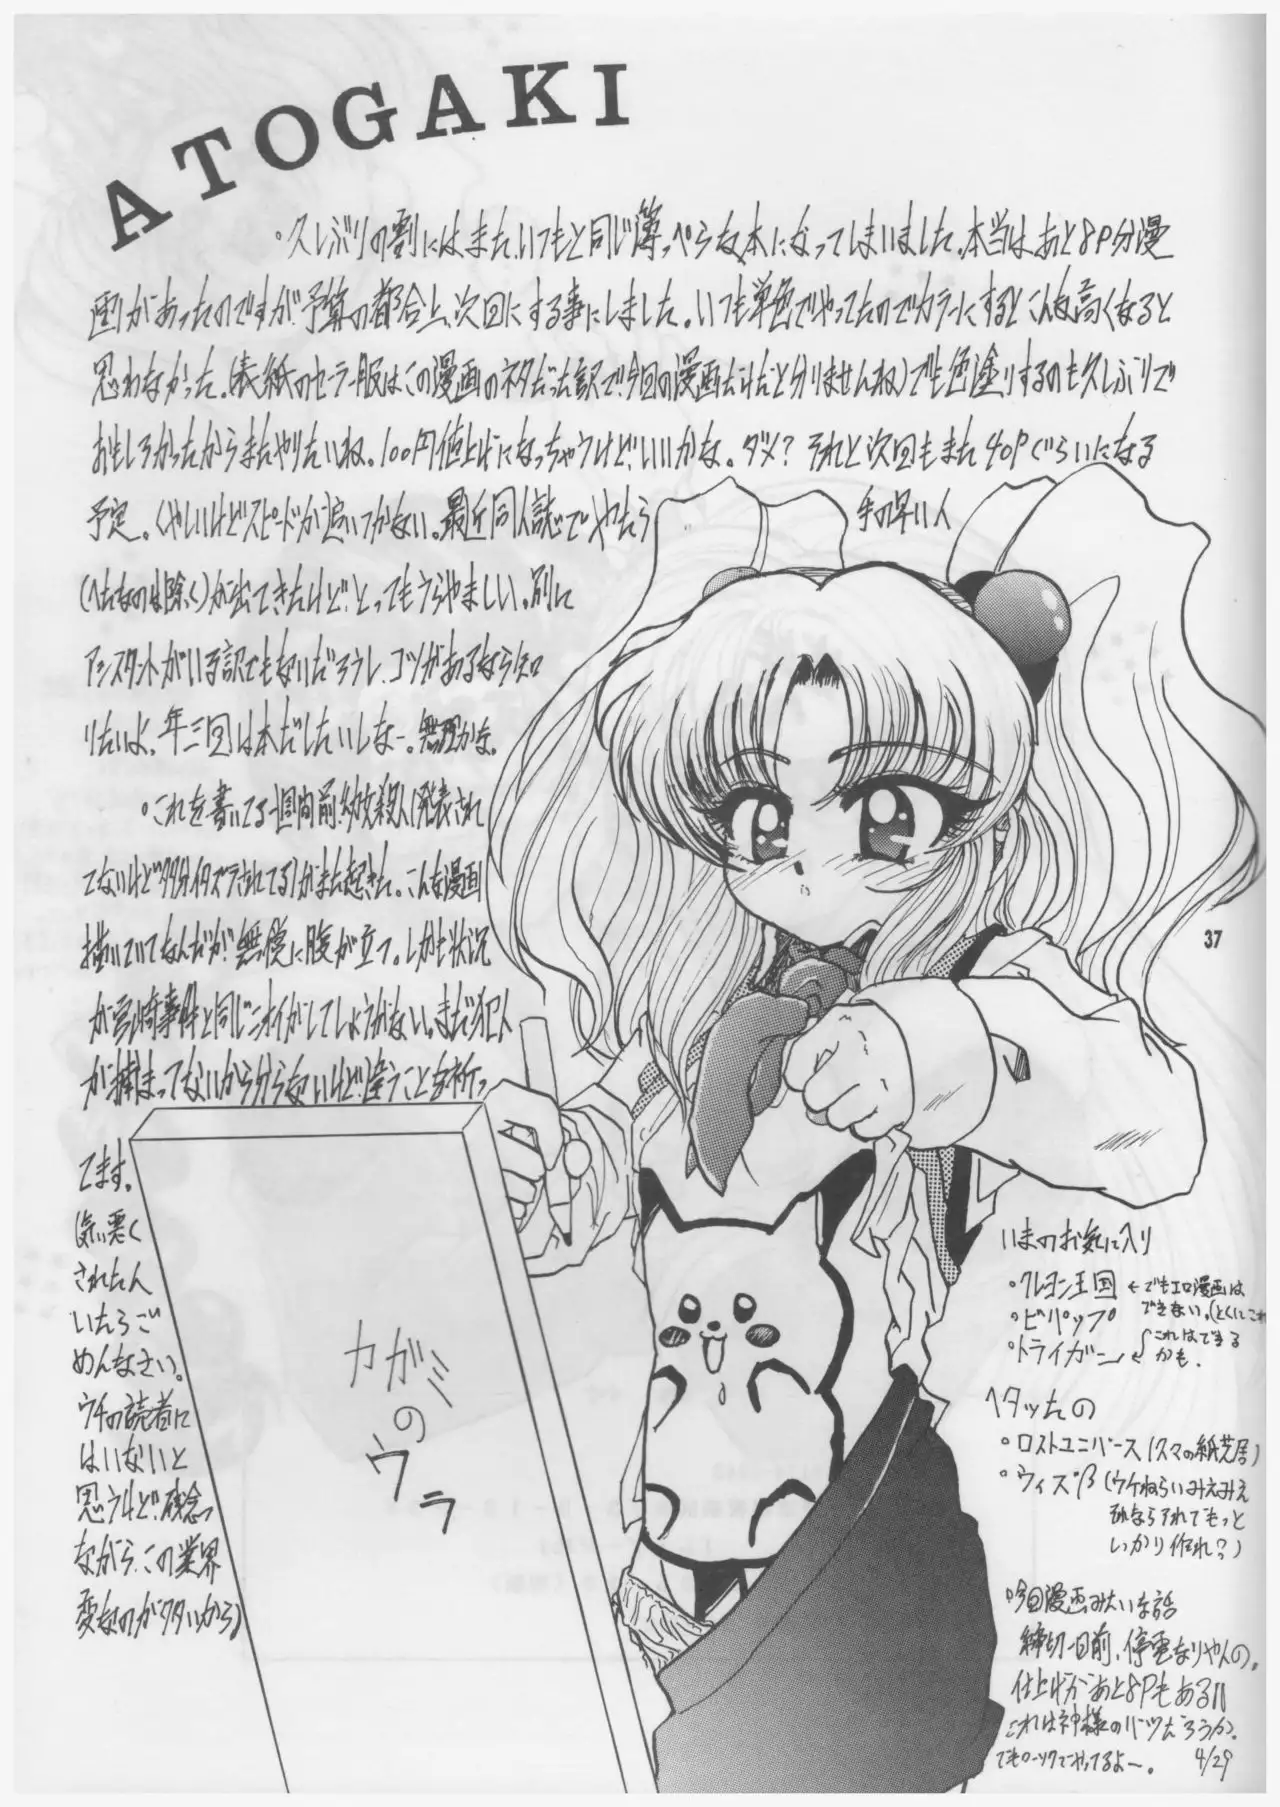 ATOGAKI
。久しぶりの割には、また、いつもと同じ薄っぺらな本になってしまいました。本当は、あと8P分漫
画があったのですが、予算の都合上、次回にする事にしました。いつも単色でやってたのでカラーにするとこんな高くなると
思わなかった。(表紙のセーラー服はこの漫画のネタだった訳で、今回の漫画だけだと分りませんね)でも色塗りするのも久しぶりで
おもしろかったからまたやりたいね。100円値上げになっちゃうけど、いいかな。ダメ？それと次回もまた40Pぐらいになる
予定。くやしいけどスピードが追いつかない。最近同人誌でやたら
手の早い人
(へたなのは除く)が出てきたけど、とってもうらやましい。別に
アシスタントがいる訳でもないだろうし、コツがあるなら知
りたいよ、年三回は本だしたいしなー。無理かな。
。これを書いてる一週間前、幼女殺人(発表され
てないけど多分イタズラされてる)がまた起きた。こんな漫画
描いていてなんだが、無性に腹が立つ。しかも状況
が宮崎事件と同じニオイがしてしょうがない。まだ犯人
が捕まってないから分からないけど、違うことを祈っ
てます。
(気い悪く
されたん
いたらご
めんなさい。
ウチの読者に
はいないと
思うけど、残念
ながら、この業界
変なのが多いから)
カガミ
の
ウラ
37
いまのお気に入り
。クレヨン王国 ←でもエロ漫画は
できない。(とくにこれ
。ビパップ
。トライガン ←これはできる
かも。
ヘタッたの
。ロストユニバース(スマの紙芝居)
。ウィズβ(ウケねらいみえみえ
それならアレでもっと
しっかり作れ？)
。今回漫画みたいな話
締切一日前、停電なりやんの。
仕上げがあと8Pもある!!
これは神様のバツだろうか。
でもローソクでやってるよー。 4/29